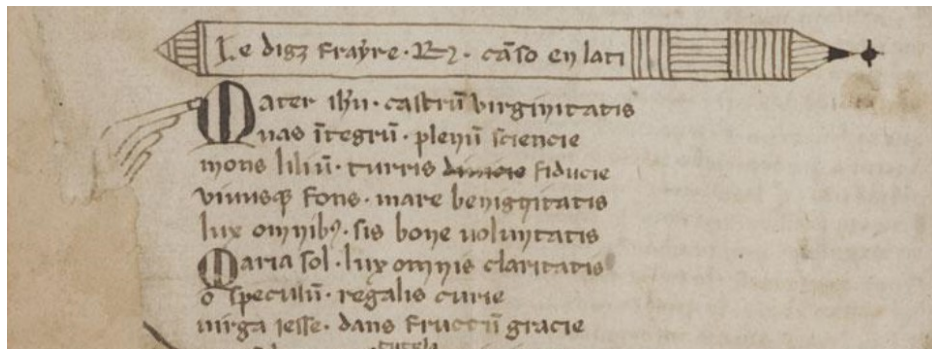 I. e digz frayre · R? · cāso en lati
Mater ihu · castrū virginitatis
uas ītegrū · plenū sciencie
mons liliū · turris diuicie fiducie
viuusq3 fons · mare benignitatis
lux omnib9 · sis bone uoluntatis
Maria sol · lux omnis claritatis
o speculū · regalis curie
uirga iesse · dans fructū gracie
tutela